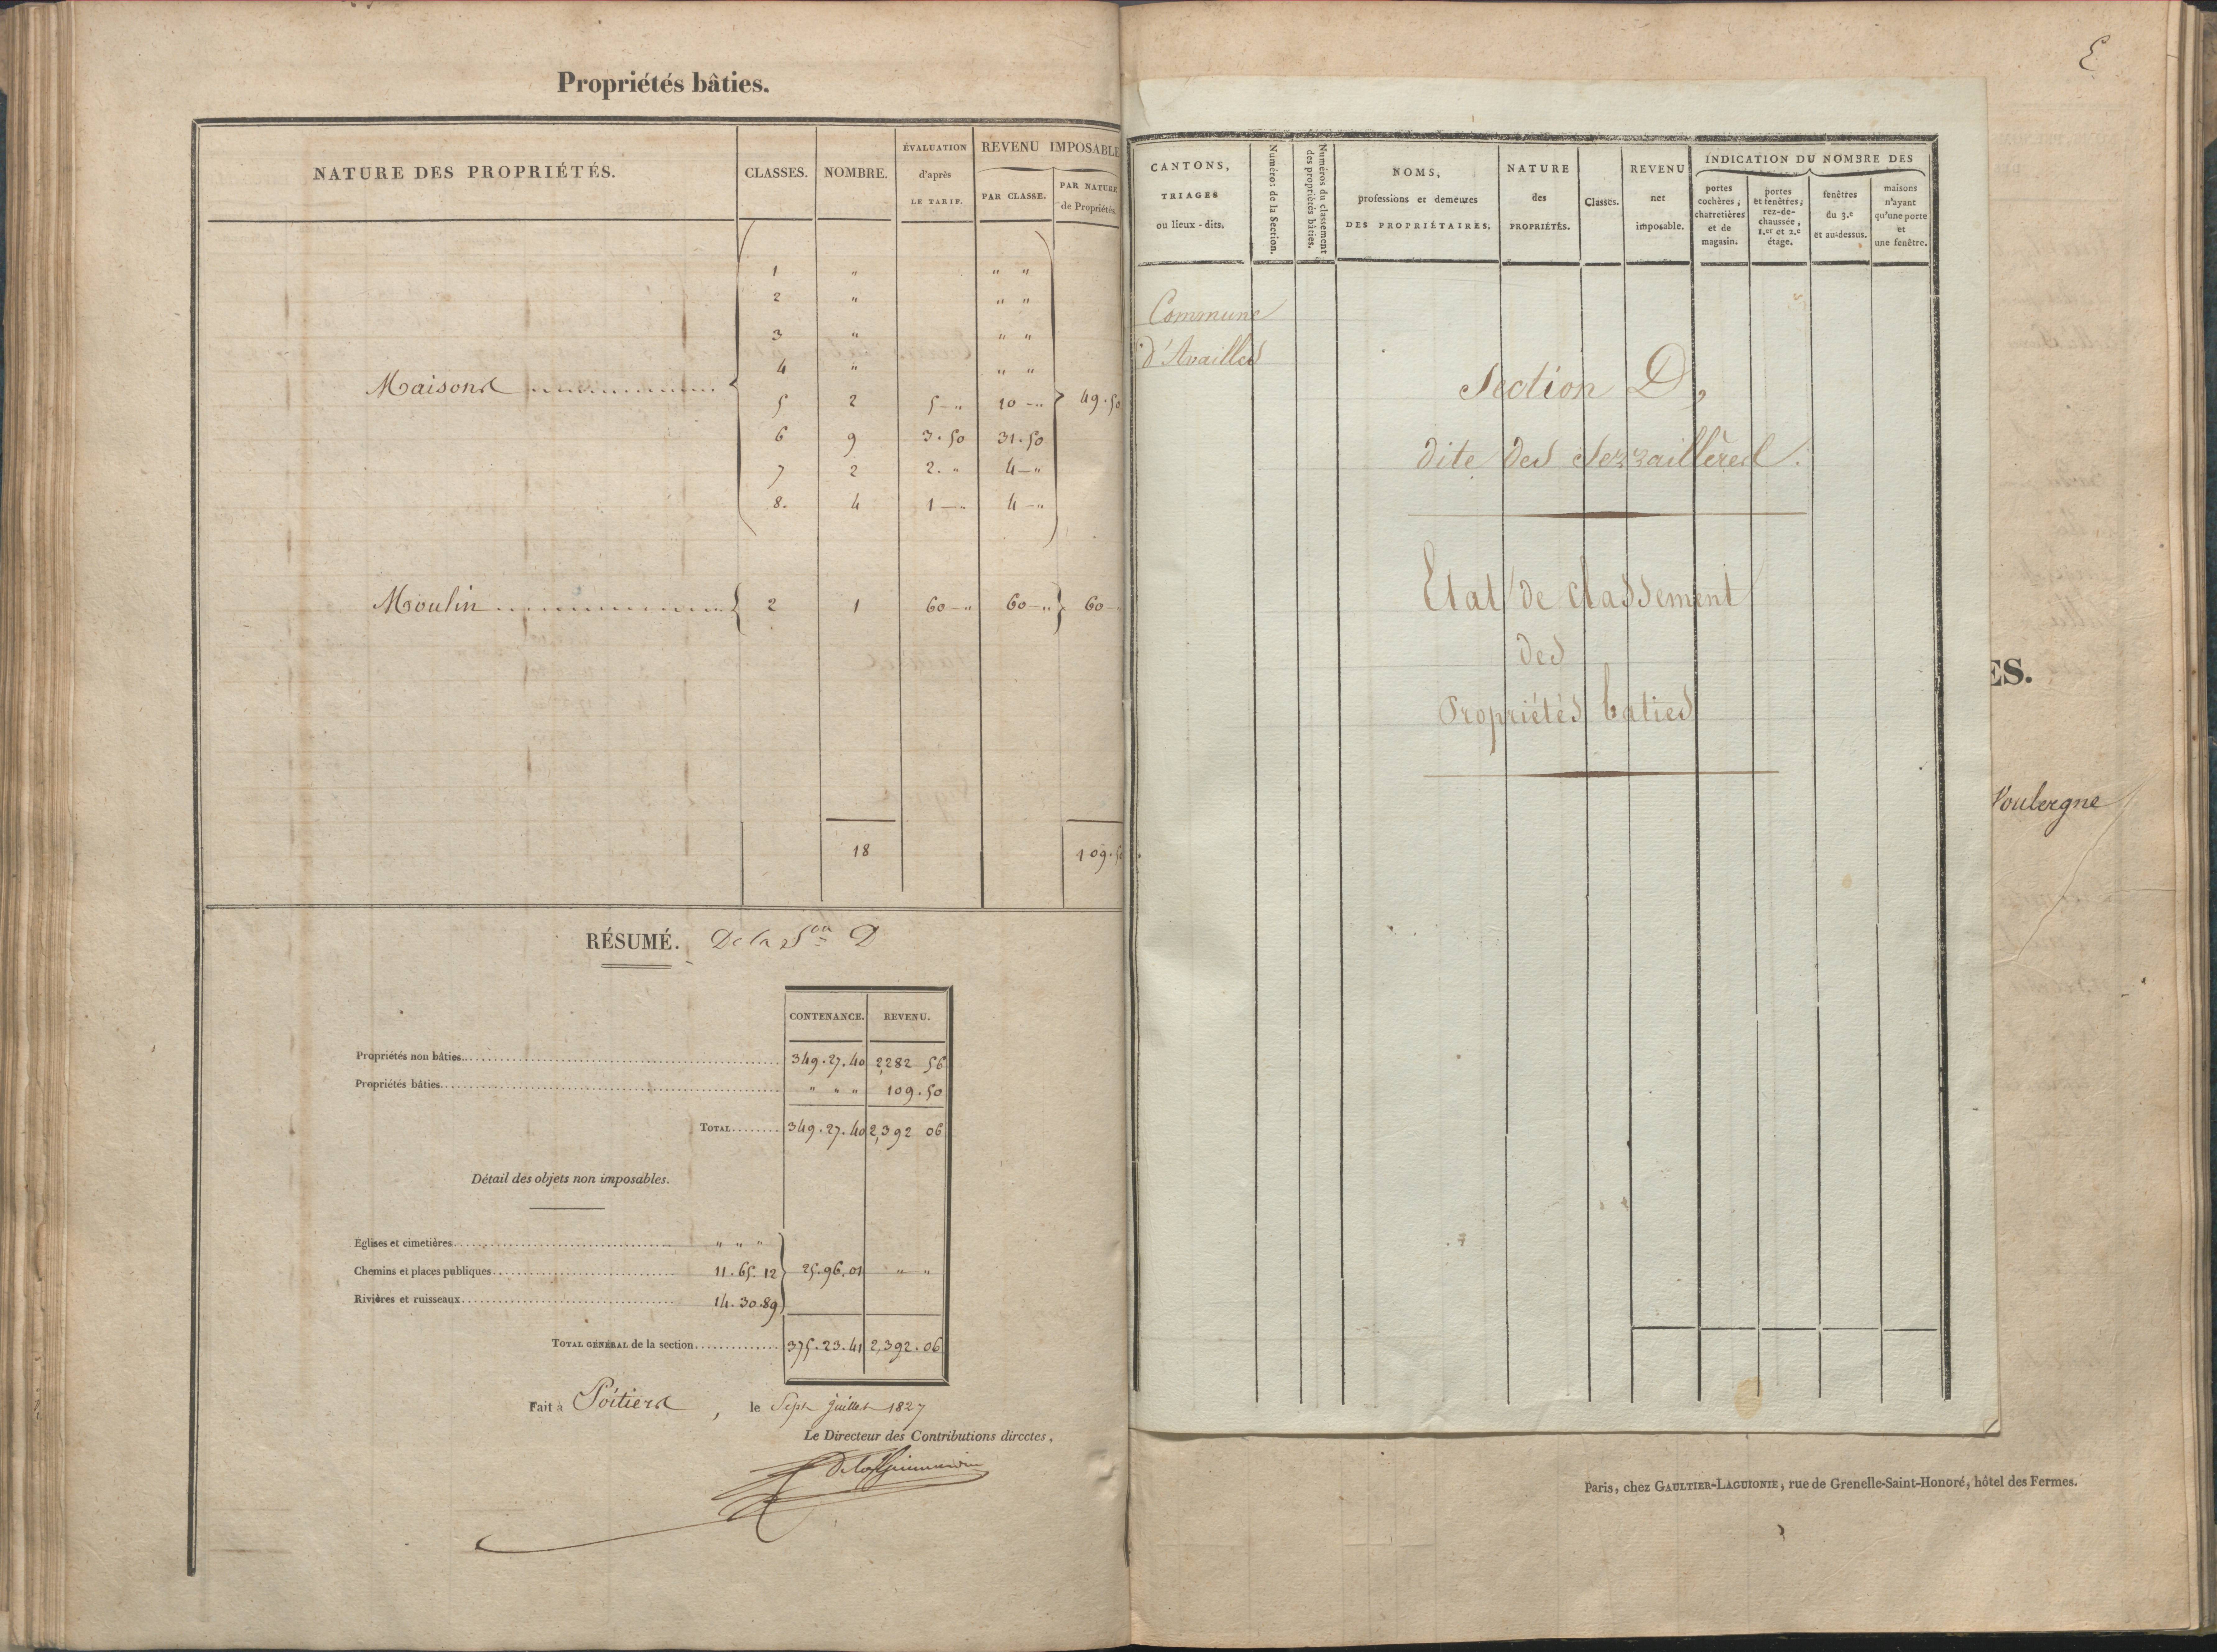 Propriétés bâties.
NATURE DES PROPRIÉTÉS. CLASSES. NOMBRE. ÉVALUATION d'après LE TARIF. REVENU IMPOSABLE
PAR CLASSE. PAR NATURE de Propriétés.
1 " " "
2 " " "
3 " " "
4 " " "
Maisons 49.50
5 2 5-" 10-"
6 9 3.50 31.50
7 2 2." 4-"
8. 4 1-" 4-"
Moulin 2 1 60-" 60-" 60-
18 109.50
RÉSUMÉ. De la S.on D
CONTENANCE. REVENU.
Propriétés non bâties 349.27.40 2,282 56
Propriétés bâties " " " 109.50
TOTAL 349.27.40 2,392 06
Détail des objets non imposables.
Eglises et cimetières " " "
Chemins et places publiques 11.65.12 25.96.01 " "
Rivières et ruisseaux 14.30.89
TOTAL GÉNÉRAL de la section 375.23.41 2,392.06
Fait à Poitiers, le Sept juillet 1827
Le Directeur des Contributions directes,
E
CANTONS, TRIAGES ou lieux-dits.
Numéros de la Section.
Numéros du classement des propriétés bâties.
NOMS, professions et demeures DES PROPRIÉTAIRES.
NATURE des PROPRIÉTÉS.
Classes.
REVENU net imposable.
INDICATION DU NOMBRE DES
portes cochères, charretières et de magasin.
portes et fenêtres, rez-de-chaussée, 1.er et 2.e étage.
fenêtres du 3.e et au-dessus.
maisons n'ayant qu'une porte et une fenêtre.
Commune
d'Availles
Section D,
dite des
Etat de classement
des
Propriétés baties
ES.
Voulergne
Paris, chez GAULTIER-LAGUIONIE, rue de Grenelle-Saint-Honoré, hôtel des Fermes.